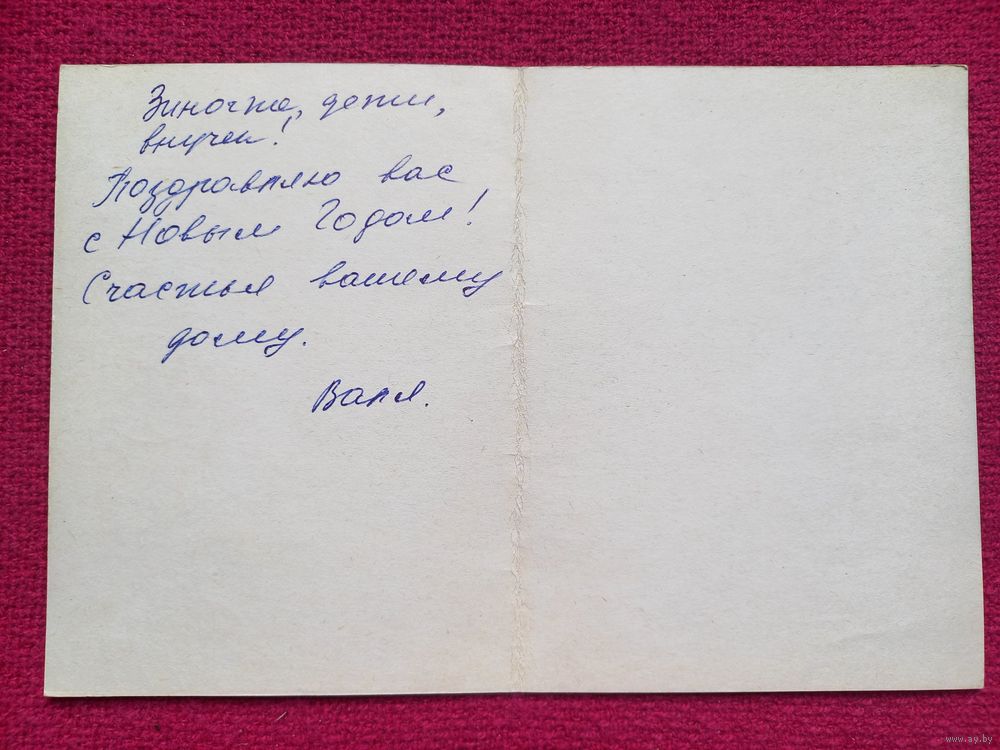 Зиночка, дети,
внучек!
Поздравляю вас
с Новым Годом!
Счастья вашему
дому.
Валя.
www.ay.by